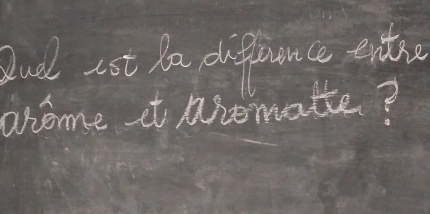 Quel est la différence entre
arôme et aromatte ?